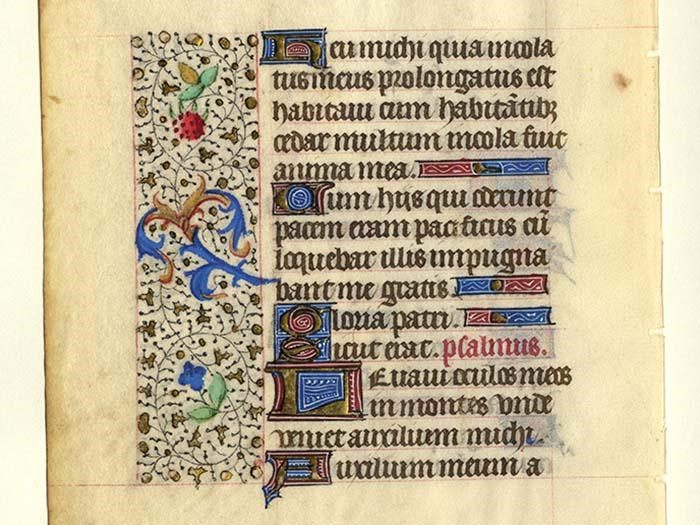 Heu michi quia incola
tus meus prolongatus est
habitaui cum habitātibz
cedar multum incola fuit
anima mea.
Cum hiis qui oderunt
pacem eram pacificus cū
loquebar illis impugna
bant me gratis.
Gloria patri.
Sicut erat. psalmus.
Leuaui oculos meos
in montes vnde
veniet auxilium michi.
Auxilium meum a